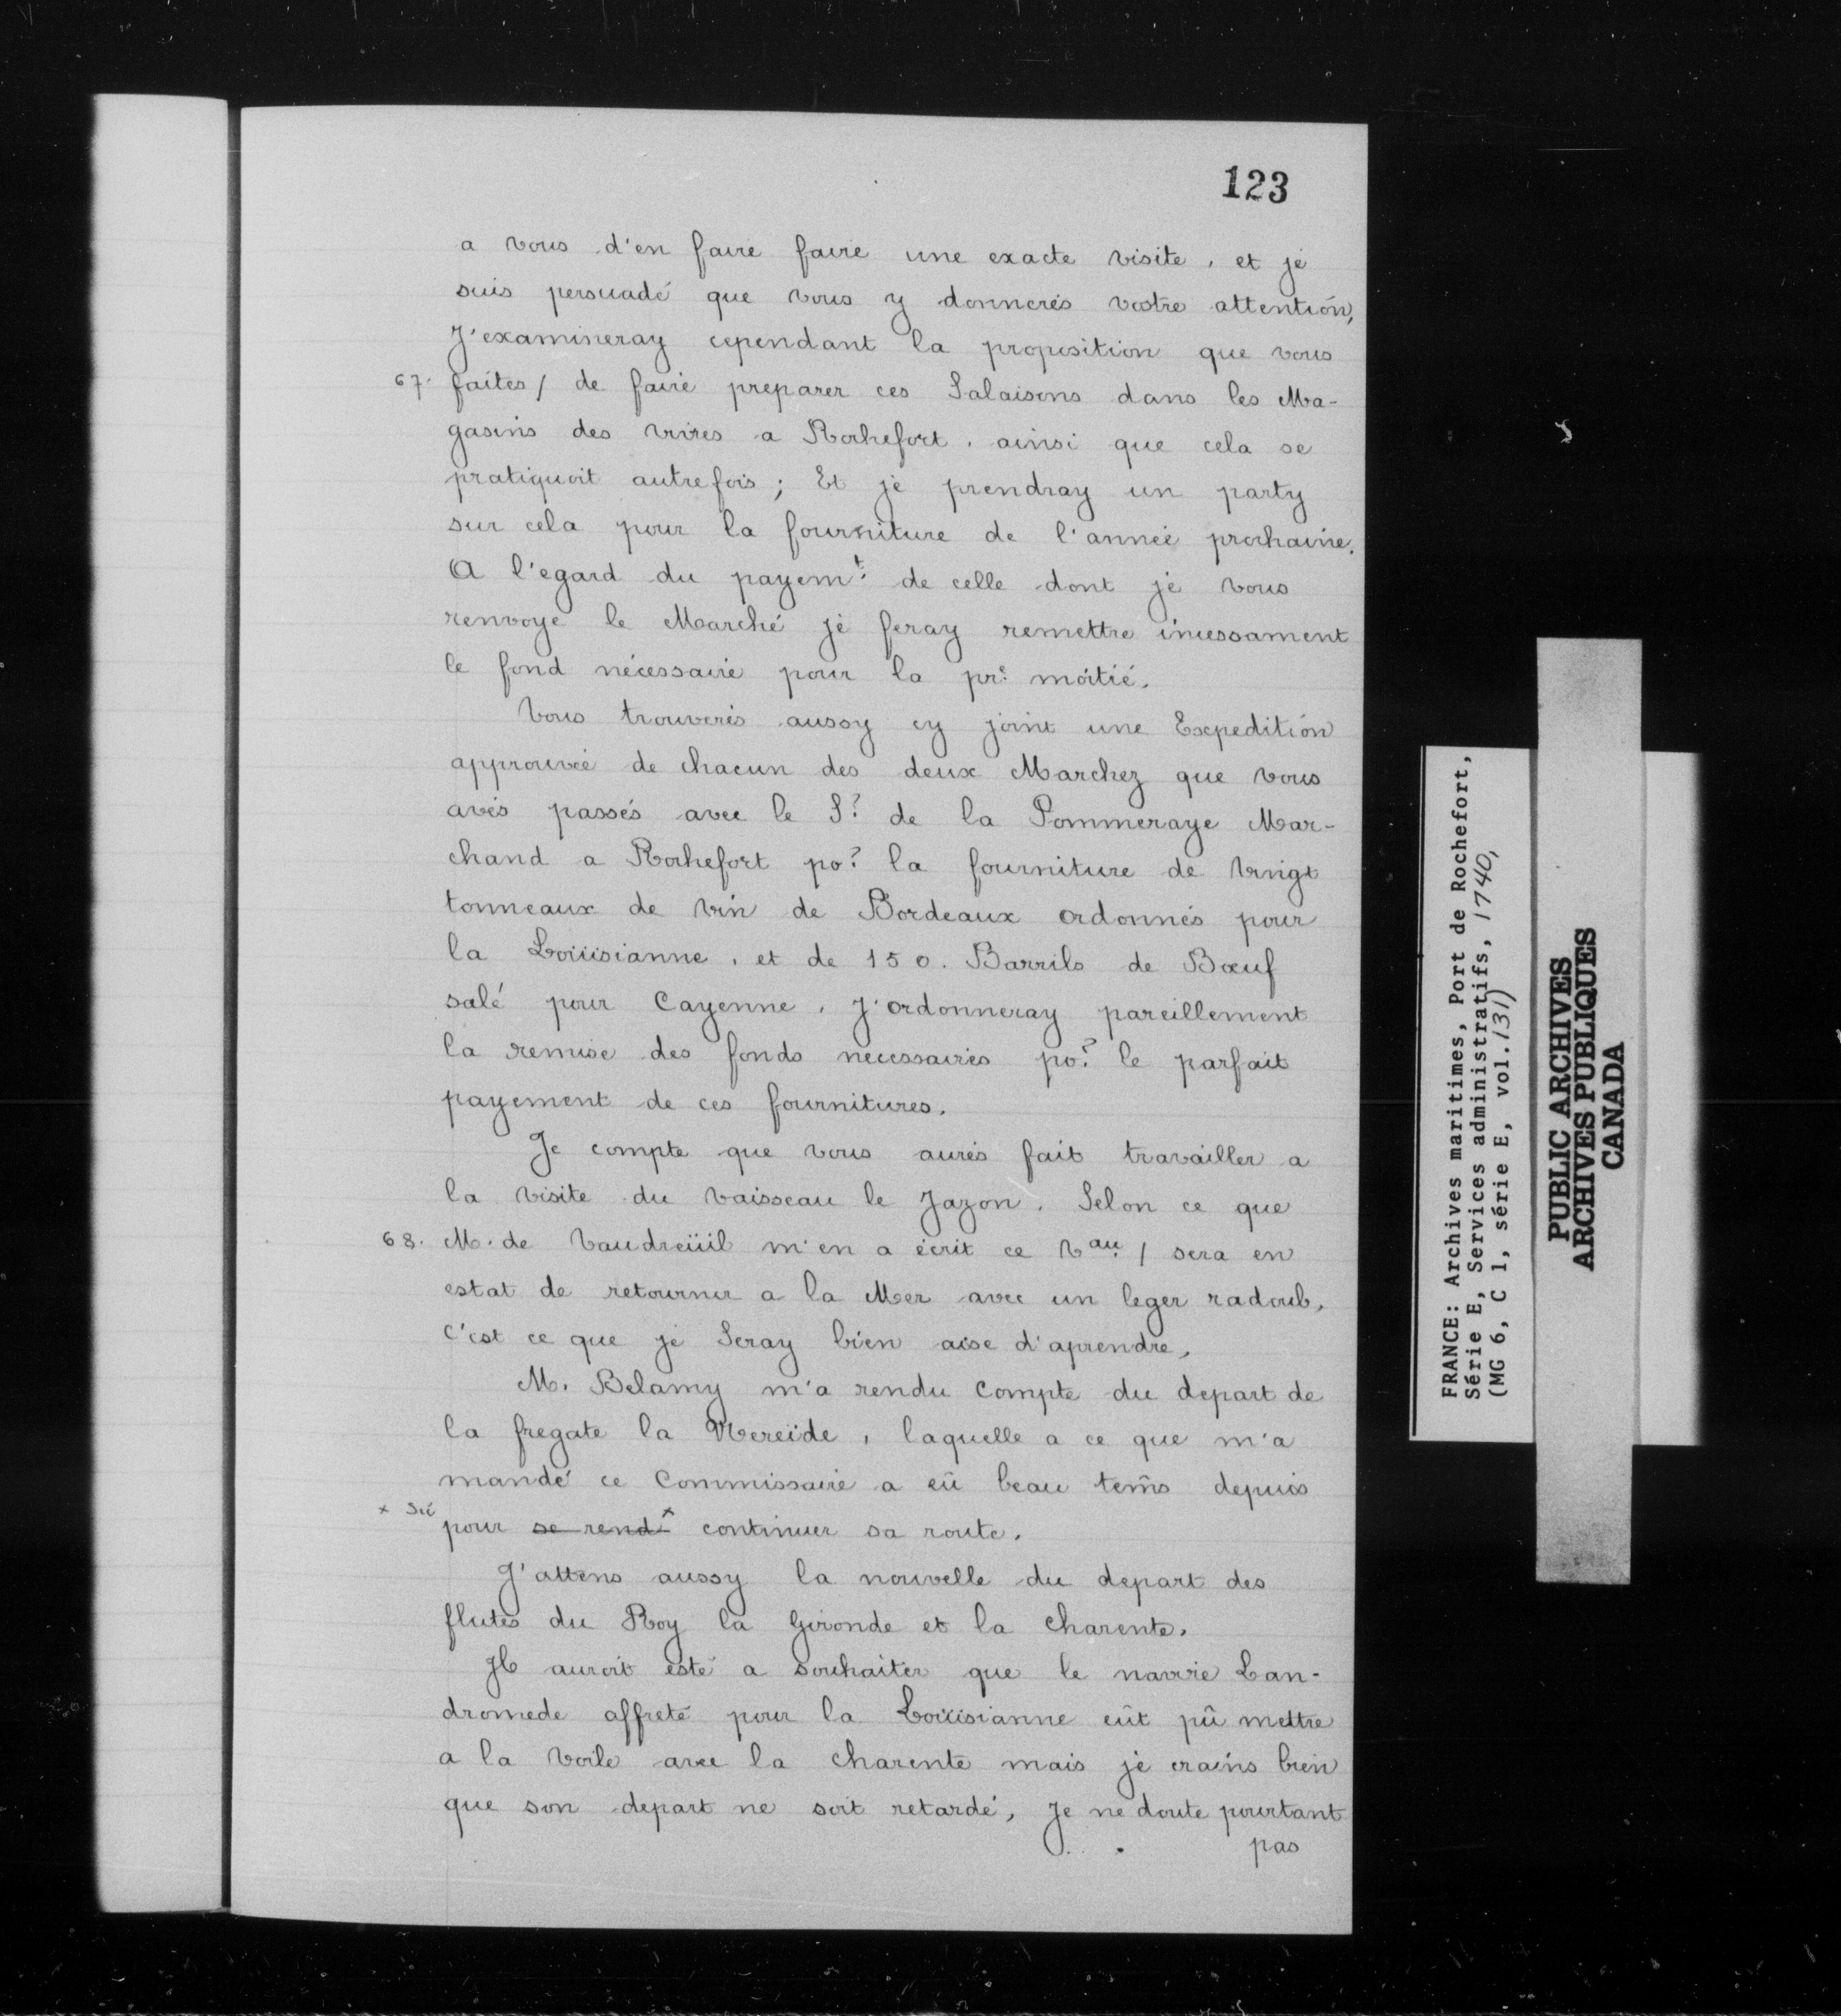 123
a vous d'en faire faire une exacte visite, et je
suis persuadé que vous y donnerés vostre attention,
J'examineray cependant la proposition que vous
67. faites / de faire preparer ces Salaisons dans les Ma-
gasins des vivres a Rochefort, ainsi que cela se
pratiquoit autrefois ; Et je prendray un party
sur cela pour la fourniture de l'année prochaine.
A l'egard du payemt. de celle dont je vous
renvoye le Marché je feray remettre incessament
le fond nécessaire pour la pre. moitié.
Vous trouverés aussy cy joint une Expedition
approuvée de chacun des deux Marchez que vous
avés passés avec le Sr. de la Pommeraye Mar-
chand a Rochefort por. la fourniture de vingt
tonneaux de vin de Bordeaux ordonnés pour
la Loüisianne, et de 150. Barrils de Bœuf
salé pour Cayenne, J'ordonneray pareillement
la remise des fonds necessaires por. le parfait
payement de ces fournitures.
Je compte que vous aurés fait travailler a
la visite du vaisseau le Jazon. Selon ce que
68. M. de Vaudreüil m'en a écrit ce Vau. / sera en
estat de retourner a la Mer avec un leger radoub,
C'est ce que je Seray bien aise d'aprendre,
M. Belamy m'a rendu compte du depart de
la fregate la Nereïde, laquelle a ce que m'a
mandé ce Commissaire a eü beau tem̃s depuis
x Sic
pour se rendx continuer sa route.
J'attens aussy la nouvelle du depart des
flutes du Roy la Gironde et la Charente.
Il auroit esté a souhaiter que le navire Lan-
dromede affreté pour la Loüisianne eût pû mettre
a la voile avec la Charente mais je crains bien
que son depart ne soit retardé, Je ne doute pourtant
pas
FRANCE: Archives maritimes, Port de Rochefort,
Série E, Services administratifs, 1740,
(MG 6, C 1, série E, vol. 131)
PUBLIC ARCHIVES
ARCHIVES PUBLIQUES
CANADA